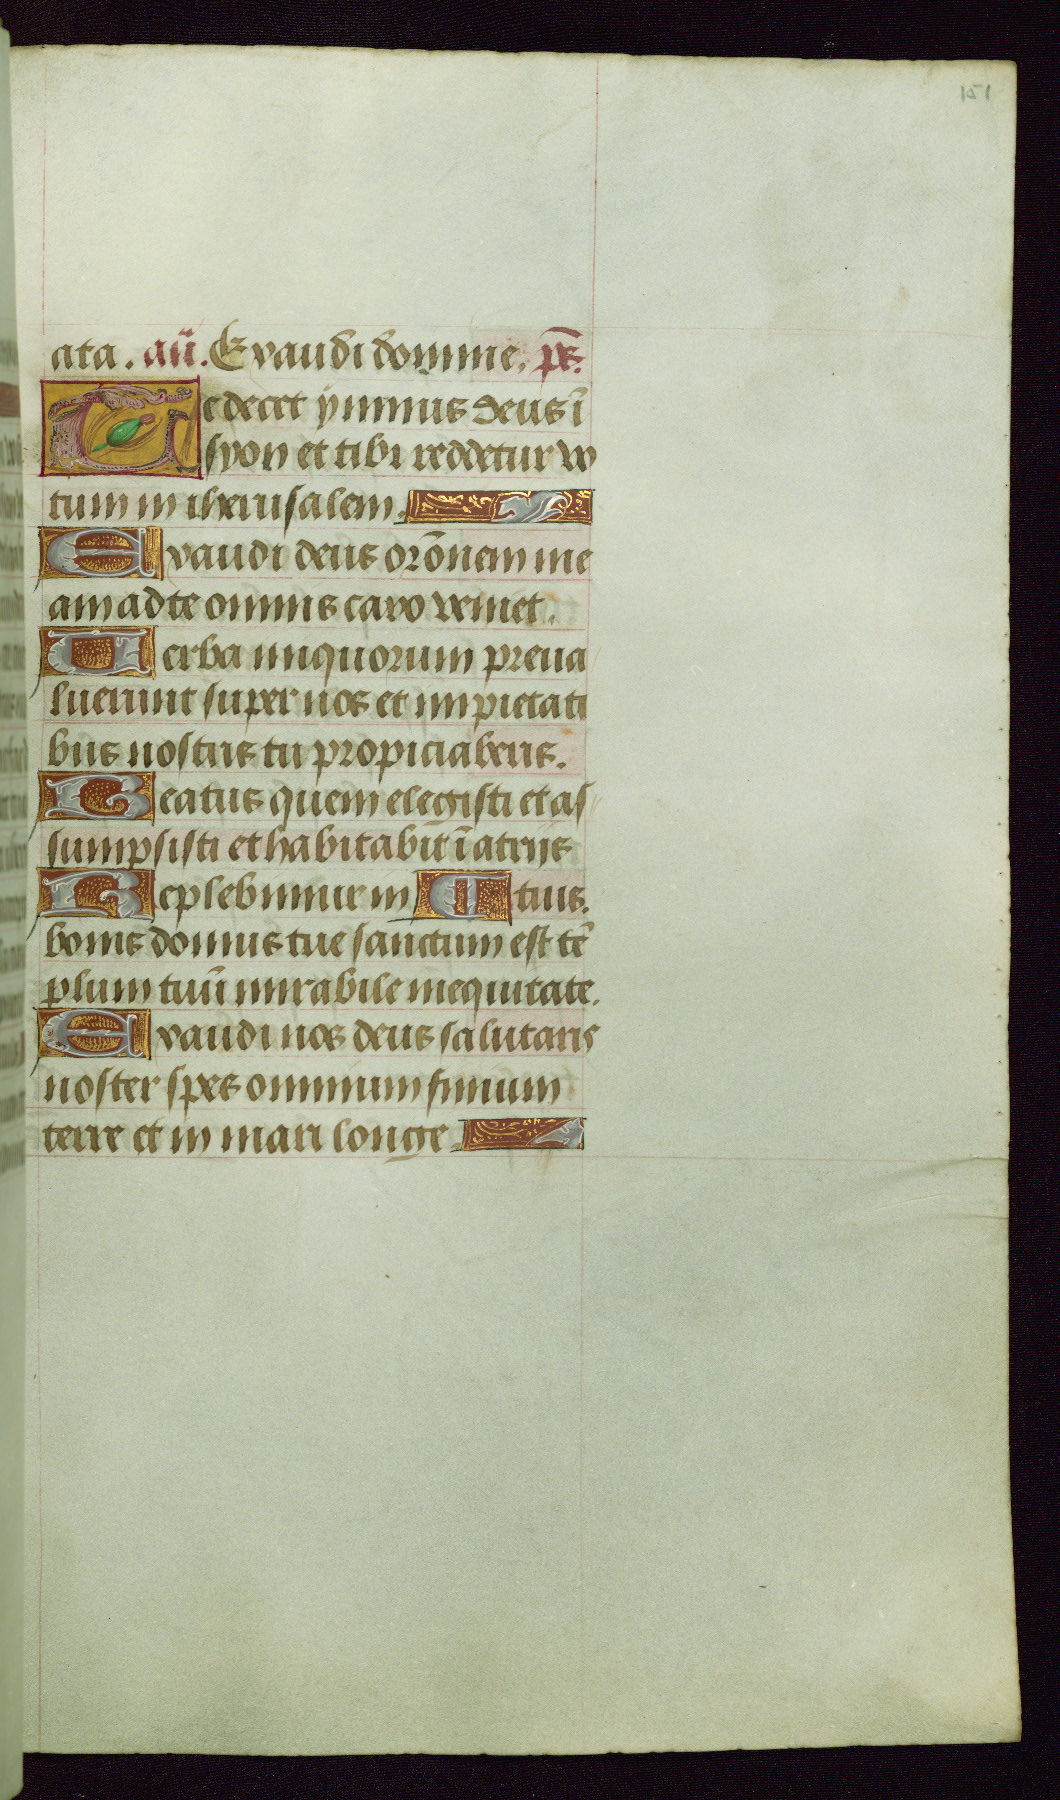 151
ata. añ. Exaudi domine. ps̄.
Te decet ymnus deus ī
syon et tibi reddetur vo
tum in iherusalem.
Exaudi deus orōnem me
am ad te omnis caro veniet.
Verba iniquorum preua
luerunt super nos et impietati
bus nostris tu propiciaberis.
Beatus quem elegisti et as
sumpsisti et habitabit ī atrijs
Replebimur in tuis.
bonis domus tue sanctum est tē
plum tuū mirabile in equitate.
Exaudi nos deus salutaris
noster spes omnium finium
terre et in mari longe.